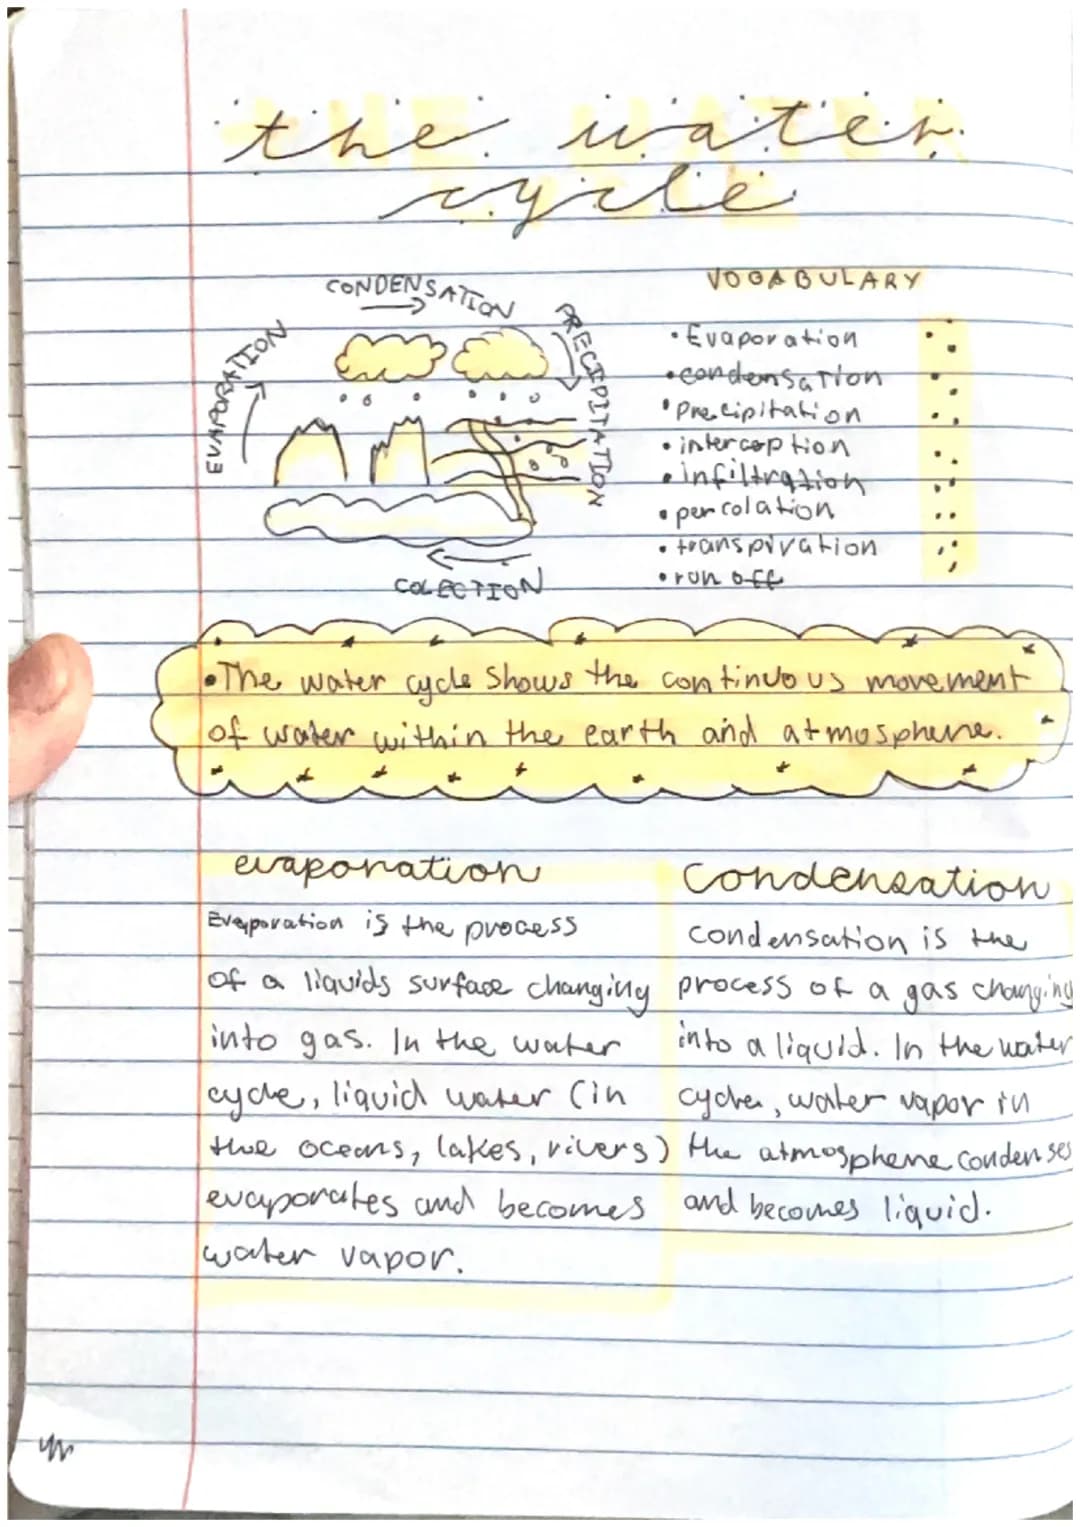 the water
cycle
CONDENSATION
EVAPORATION
PRECIPITATION
COLECTION
VOCABULARY
• Evaporation
• condensation
• Precipitation
• interception
• infiltration
• percolation
• transpiration
• run off
• The water cycle shows the continuous movement
of water within the earth and atmosphere.
evaporation
Evaporation is the process
of a liquids surface changing
into gas. In the water
cycle, liquid water (in
the oceans, lakes, rivers)
evaporates and becomes
water vapor.
Condensation
Condensation is the
process of a gas changing
into a liquid. In the water
cycle, water vapor in
the atmosphere condenses
and becomes liquid.